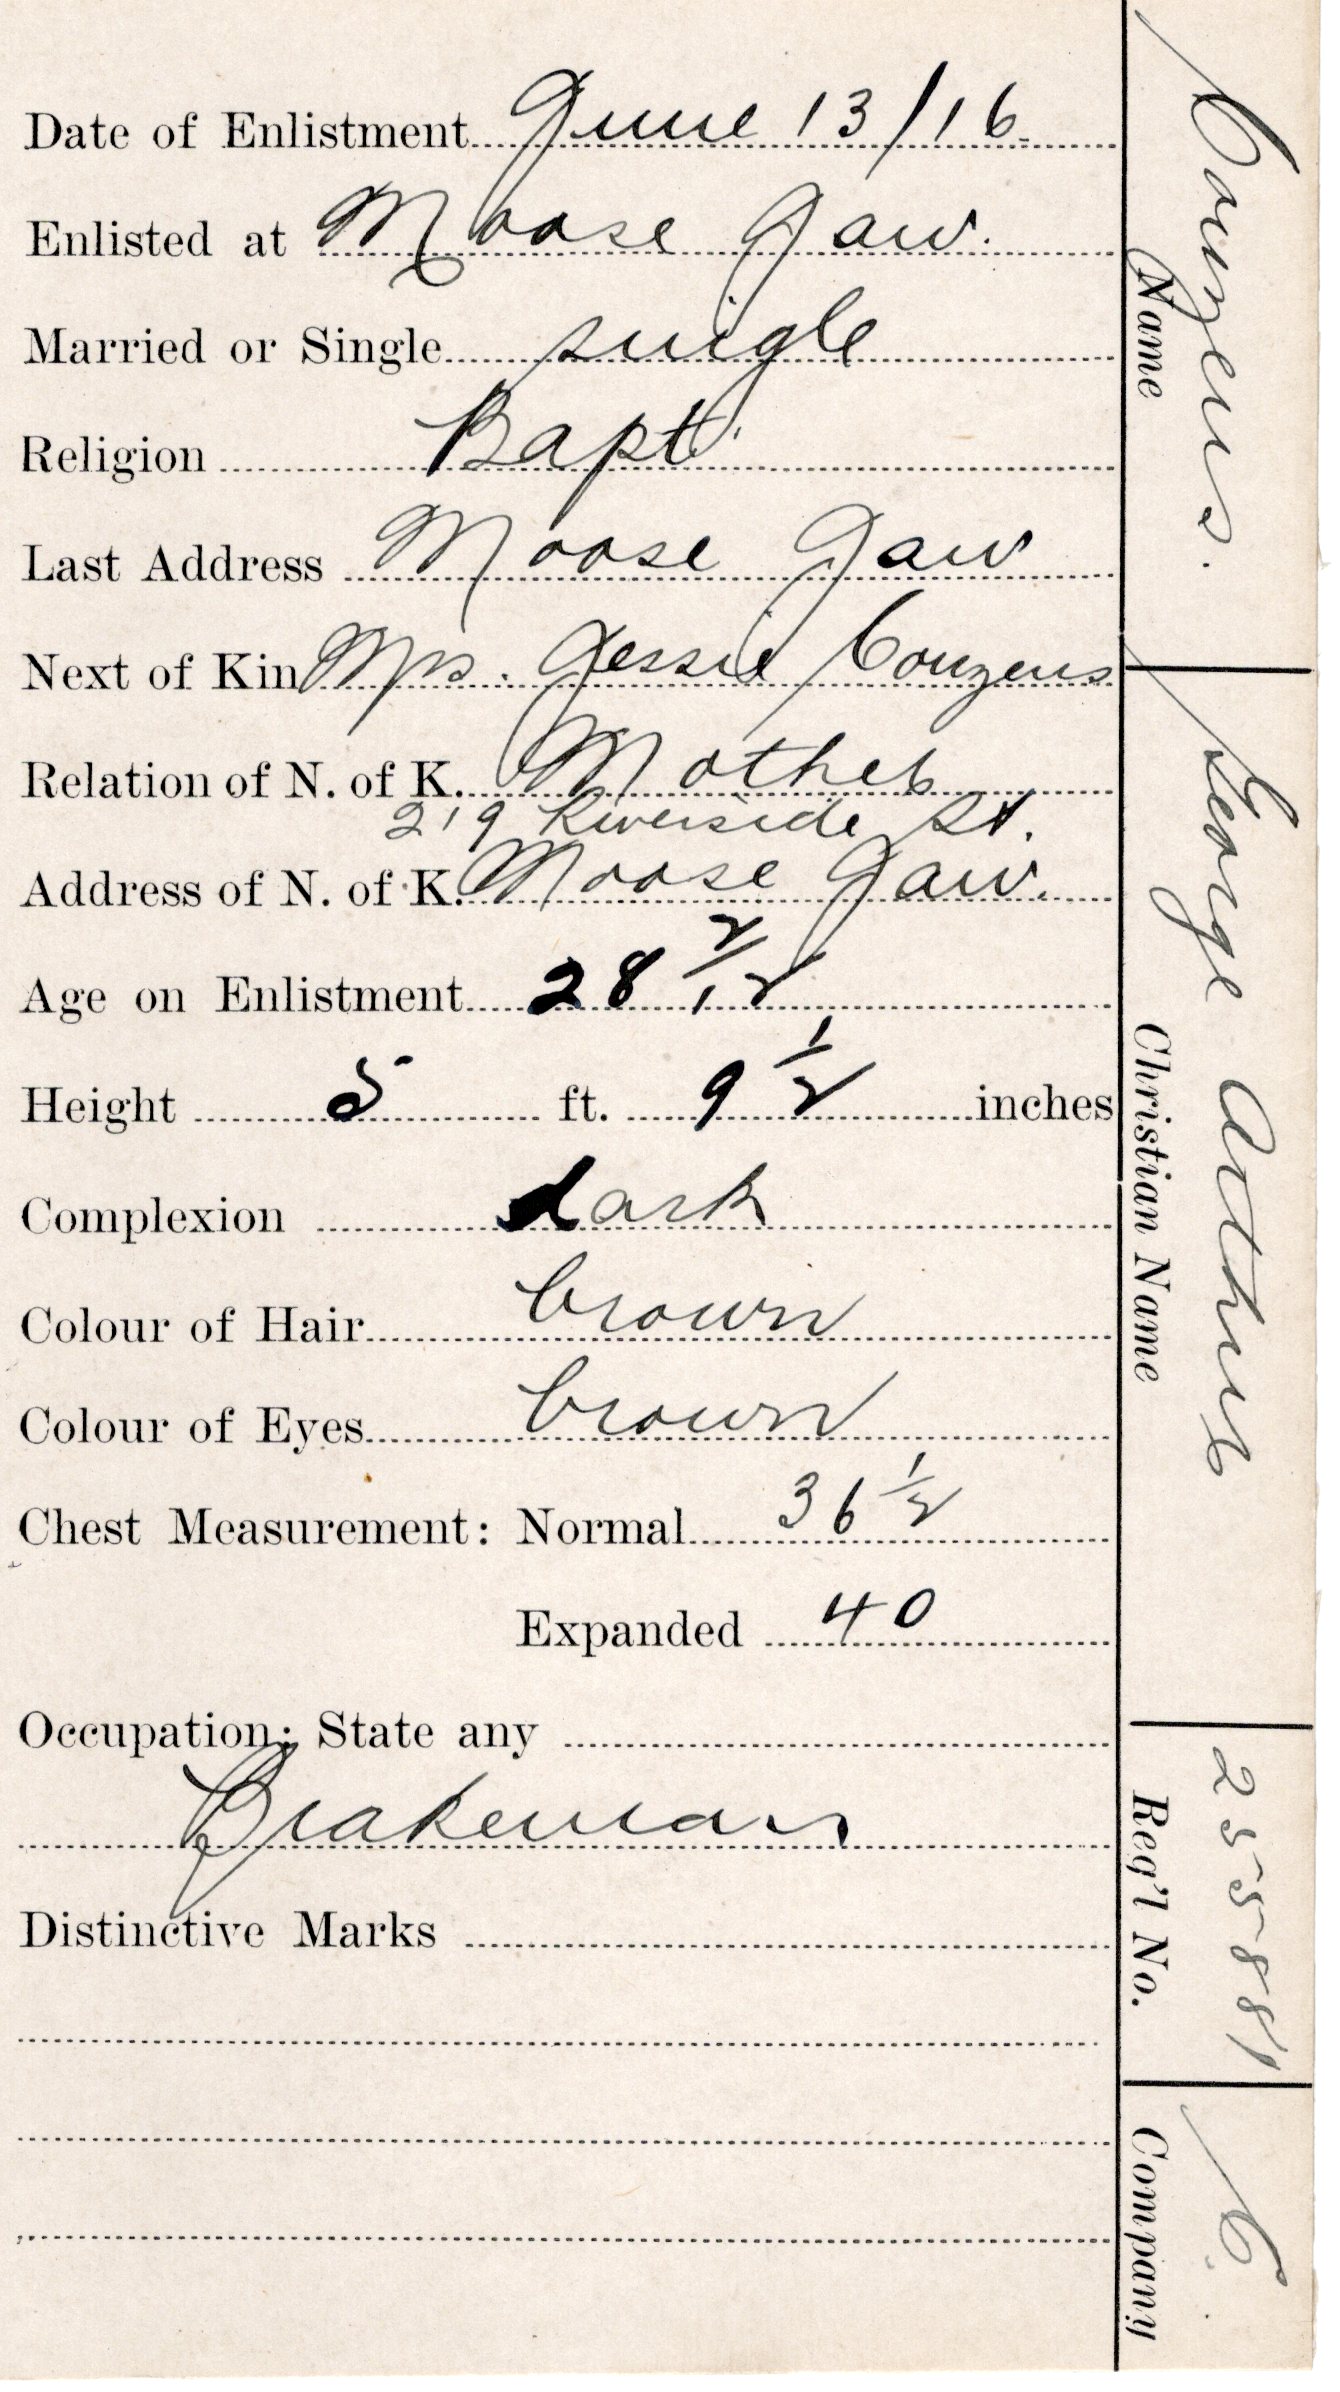 Date of Enlistment June 13/16
Enlisted at Moose Jaw.
Married or Single single
Religion Bapt.
Last Address Moose Jaw
Next of Kin Mrs. Jessie Couzens
Relation of N. of K. Mother
219 Riverside St.
Address of N. of K. Moose Jaw.
Age on Enlistment 28 2/12
Height 5 ft. 9 1/2 inches
Complexion dark
Colour of Hair brown
Colour of Eyes brown
Chest Measurement: Normal 36 1/2
Expanded 40
Occupation: State any
Brakeman
Distinctive Marks
Couzens.
Name
George Arthur
Christian Name
255881
Reg'l No.
C.
Company